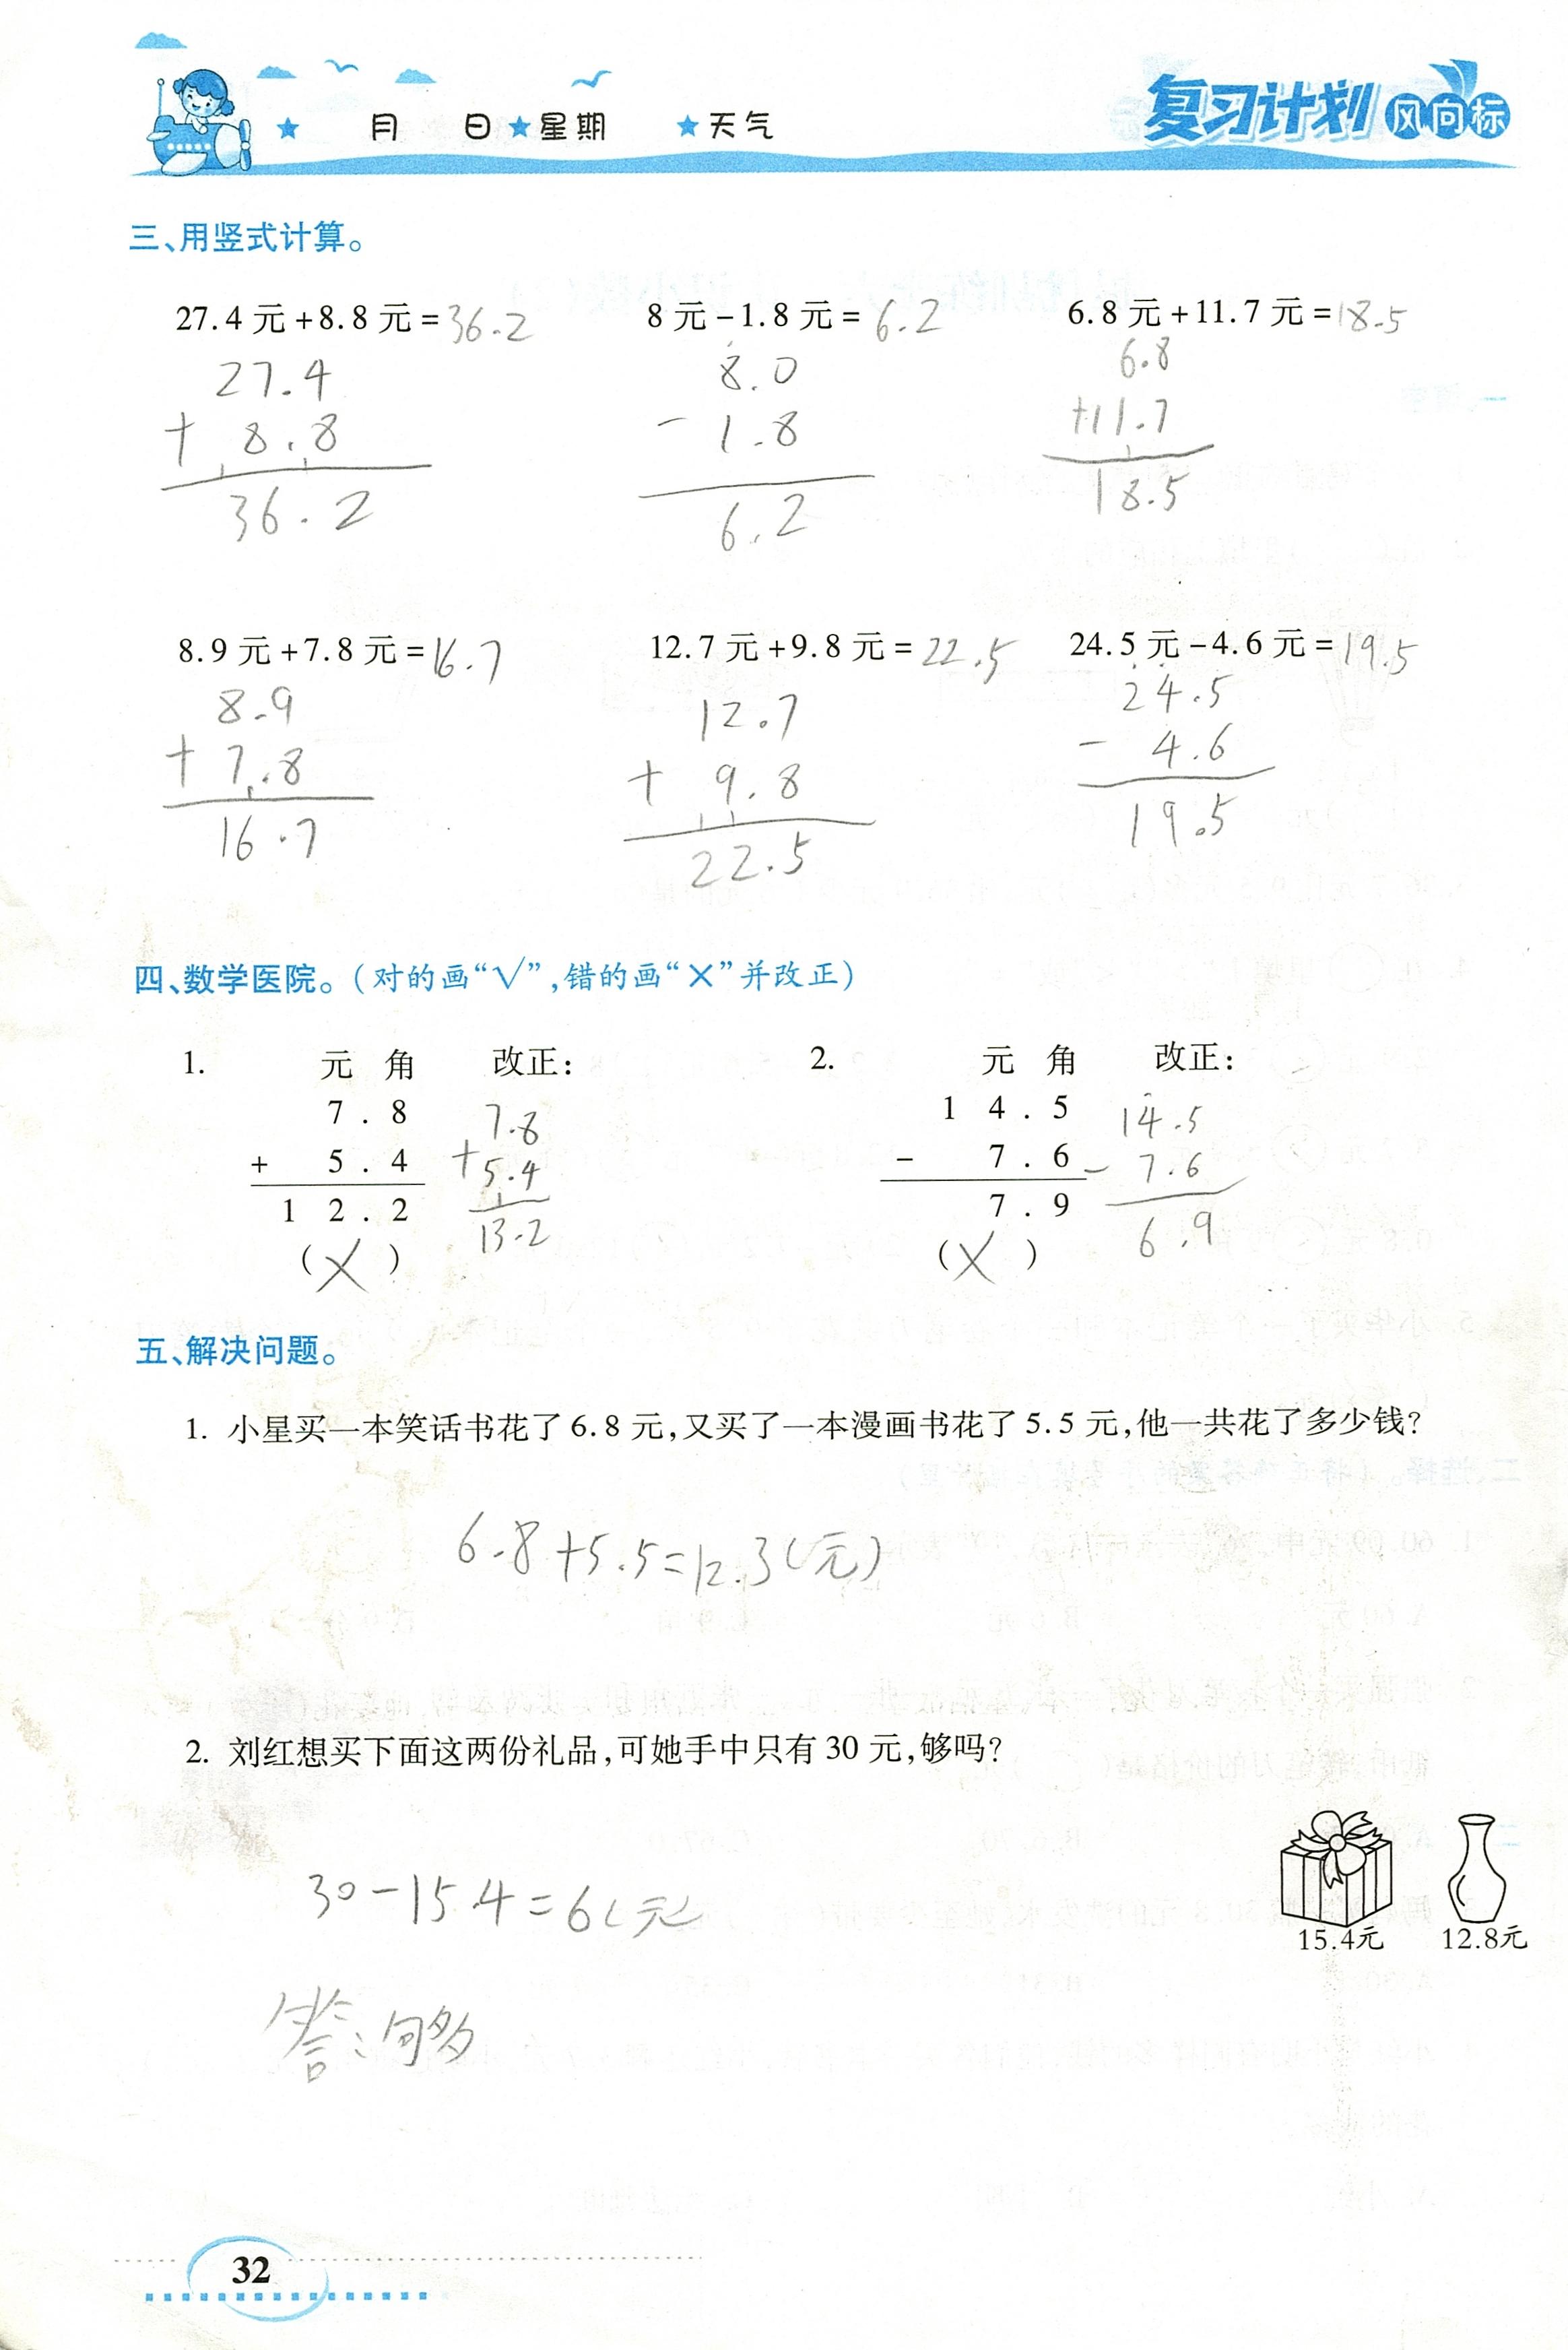 月 日 星期 天气
复习计划 风向标
三、用竖式计算。
27.4元+8.8元=36.2 8元-1.8元=6.2 6.8元+11.7元=18.5
27.4 8.0 6.8
+ 8.8 - 1.8 +11.7
36.2 6.2 18.5
8.9元+7.8元=16.7 12.7元+9.8元=22.5 24.5元-4.6元=19.5
8.9 12.7 24.5
+ 7.8 + 9.8 - 4.6
16.7 22.5 19.5
四、数学医院。(对的画“√”,错的画“×”并改正)
1. 元 角 改正: 2. 元 角 改正:
7.8 7.8 14.5 14.5
+ 5.4 +5.4 - 7.6 - 7.6
12.2 13.2 7.9 6.9
(×) (×)
五、解决问题。
1. 小星买一本笑话书花了6.8元,又买了一本漫画书花了5.5元,他一共花了多少钱?
6.8+5.5=12.3(元)
2. 刘红想买下面这两份礼品,可她手中只有30元,够吗?
30-15.4=6(元
15.4元 12.8元
答:够
32